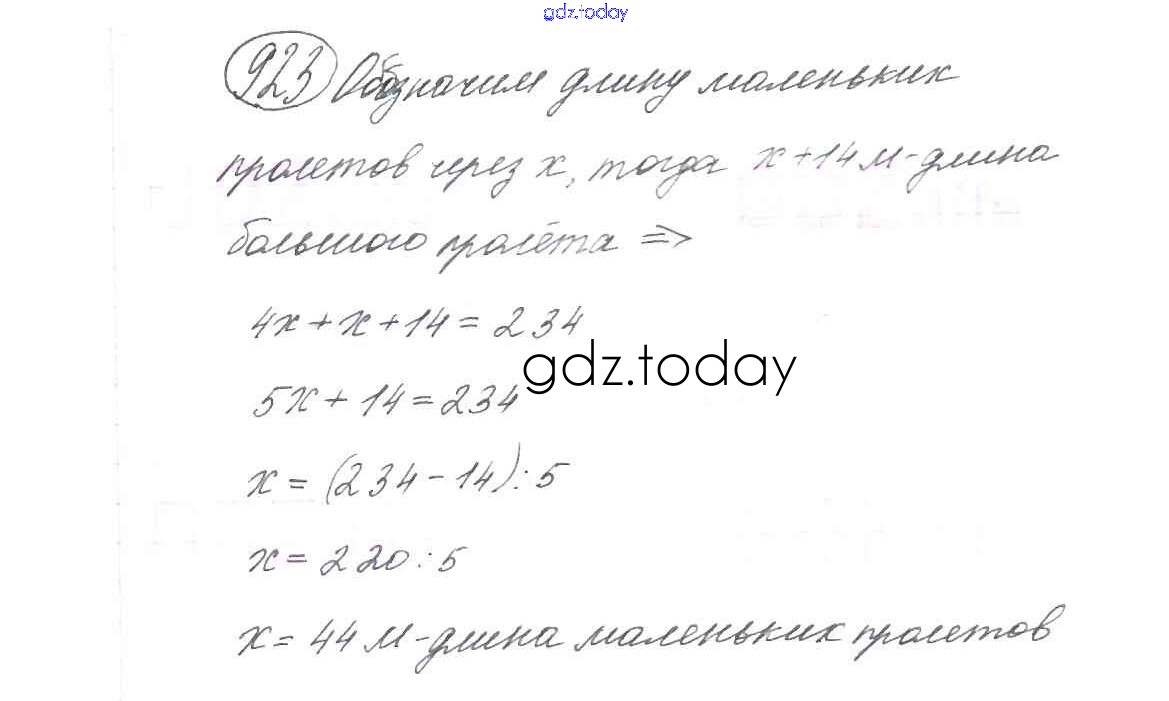 gdz.today
923 Обозначим длину маленьких
пролетов через x, тогда x+14 м-длина
большого пролёта =>
4x+x+14=234
gdz.today
5x+14=234
x=(234-14):5
x=220:5
x=44 м-длина маленьких пролетов